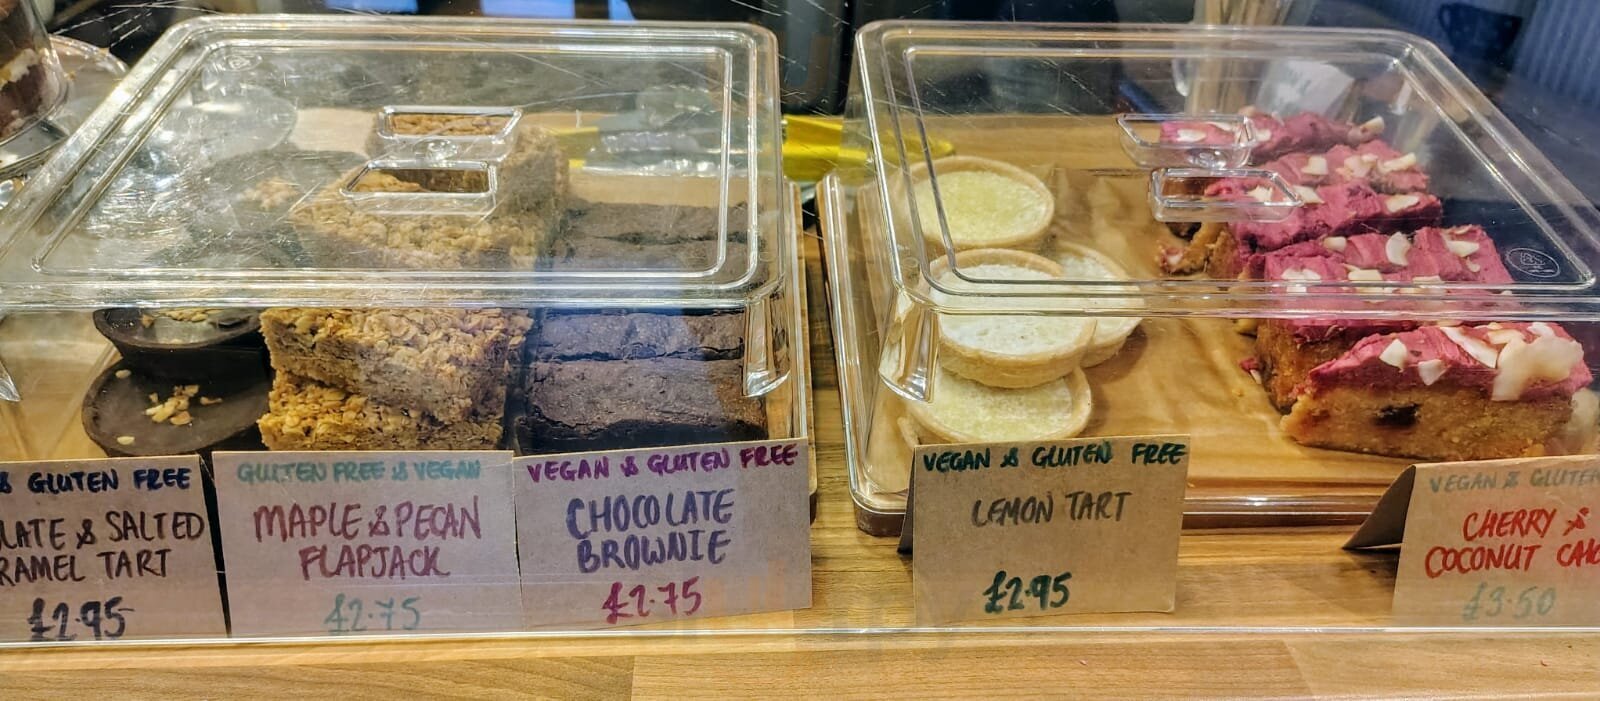 & GLUTEN FREE
LATE & SALTED
RAMEL TART
£2.95
GLUTEN FREE & VEGAN
MAPLE & PECAN
FLAPJACK
£2.75
VEGAN & GLUTEN FREE
CHOCOLATE
BROWNIE
£2.75
VEGAN & GLUTEN FREE
LEMON TART
£2.95
VEGAN & GLUTEN
CHERRY &
COCONUT CAK
£3.50